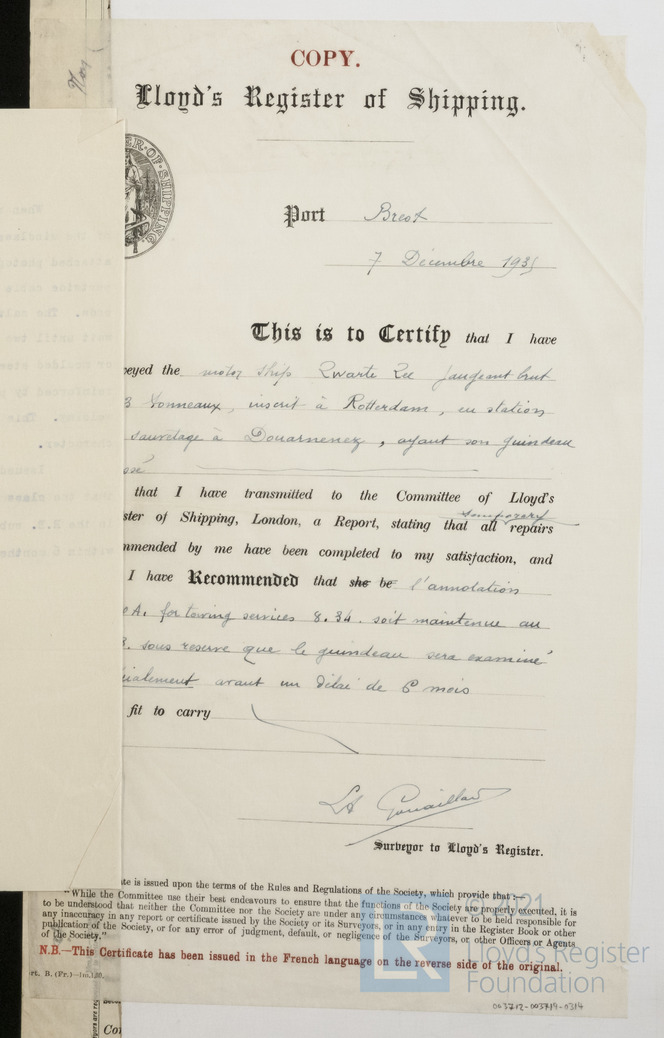 COPY.
Lloyd's Register of Shipping.
ER·OF·SHIPPING
Port Brest
7 Décembre 1935
This is to Certify that I have
veyed the motor ship Zwarte Zee jaugeant brut
3 tonneaux, inscrit à Rotterdam, en station
sauvetage à Douarnenez, ayant son guindeau
ssé
that I have transmitted to the Committee of Lloyd's
temporary
ster of Shipping, London, a Report, stating that all repairs
mmended by me have been completed to my satisfaction, and
I have Recommended that she be l'annotation
A. for towing services 8.34. soit maintenue au
B. sous reserve que le guindeau sera examiné
cialement avant un délai de 6 mois
fit to carry
Surveyor to Lloyd's Register.
te is issued upon the terms of the Rules and Regulations of the Society, which provide that:—
"While the Committee use their best endeavours to ensure that the functions of the Society are properly executed, it is
to be understood that neither the Committee nor the Society are under any circumstances whatever to be held responsible for
any inaccuracy in any report or certificate issued by the Society or its Surveyors, or in any entry in the Register Book or other
publication of the Society, or for any error of judgment, default, or negligence of the Surveyors, or other Officers or Agents
of the Society."
N.B.—This Certificate has been issued in the French language on the reverse side of the original.
rt. B. (Fr.)
© 2021
LR
Lloyd's Register
Foundation
003712-003719-0314